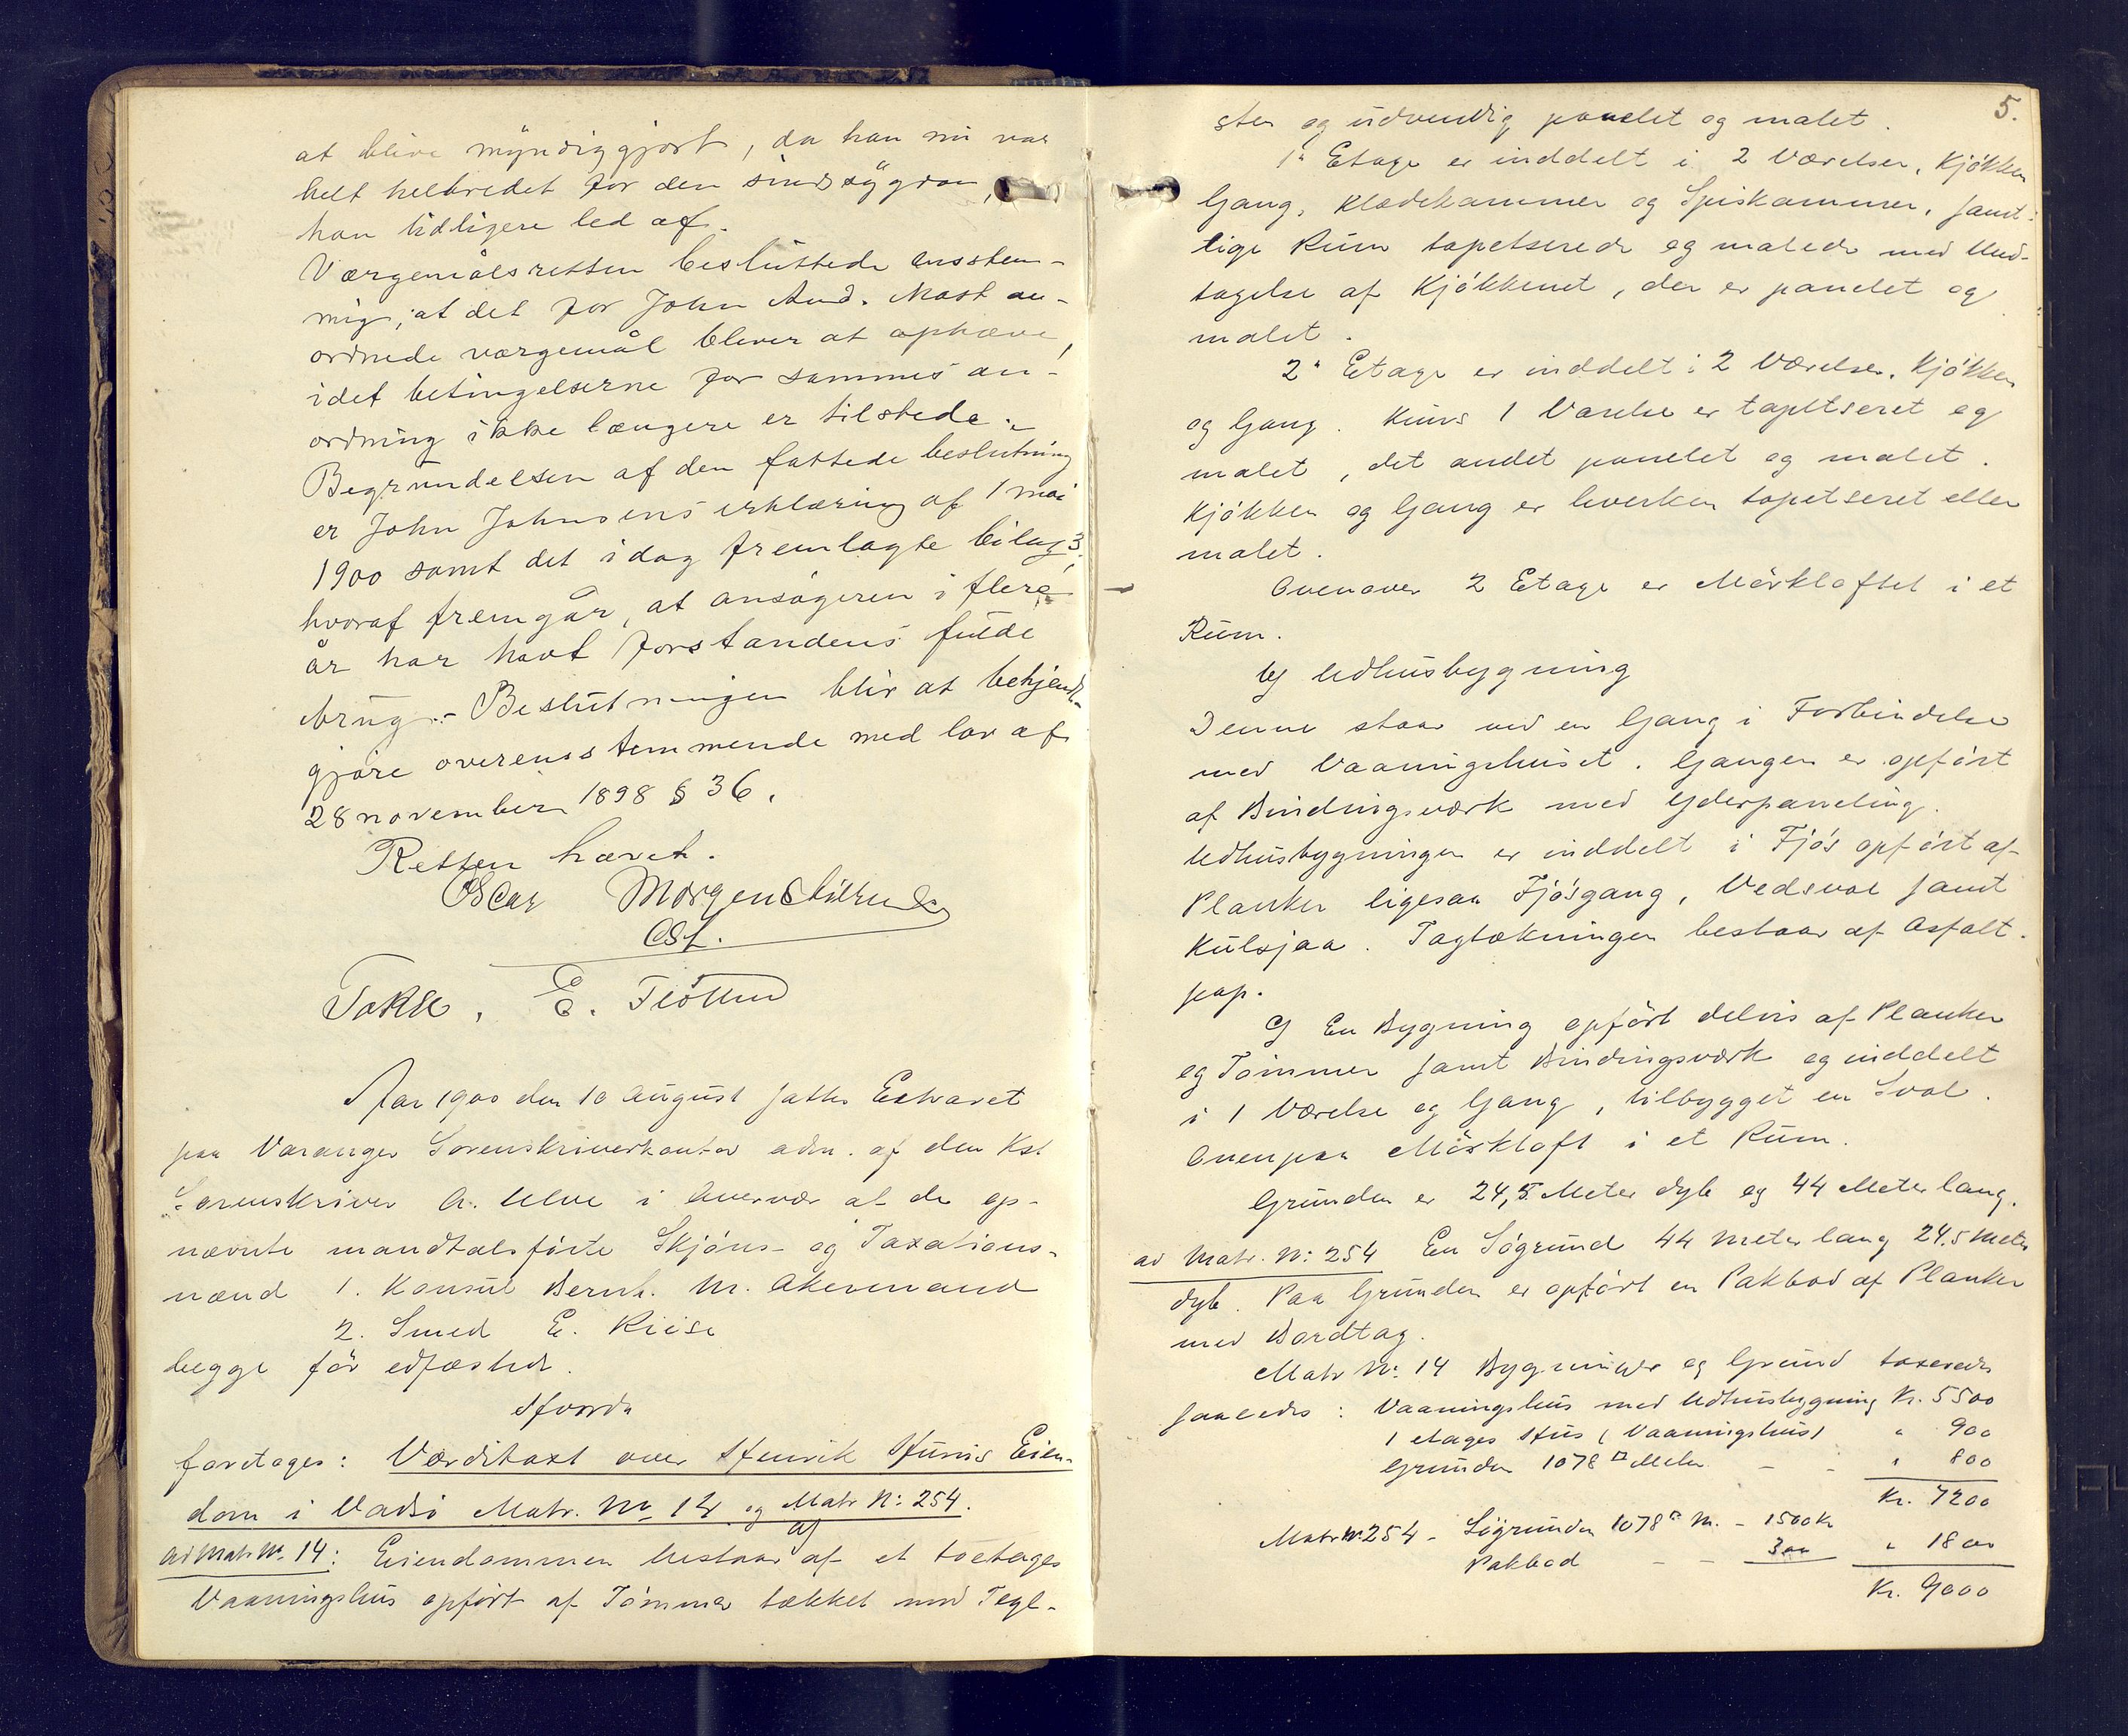 at blive myndiggjort, da han nu var
helt helbredet for den sindssygdom,
han tidligere led af.
Værgemålsretten besluttede enstem-
mig, at det for John And. Mast an-
ordnede værgemål bliver at ophæve,
idet betingelserne for sammes an-
ordning ikke længere er tilstede.
Begrundelsen af den fattede beslutning
er John Johnsens erklæring af 1 mai
1900 samt det idag fremlagte bilag 3,
hvoraf fremgår, at ansøgeren i flere
år har havt forstandens fulde
brug. - Beslutningen blir at bekjendt-
gjøre overensstemmende med lov af
28 november 1898 § 36.
Retten hævet.
Oscar Morgenstierne
cst.
Takse, E. Fløttum
Aar 1900 den 10 August sattes Extraret
paa Varanger Sorenskriverkontor adm. af den Kst
Sorenskriver A. Ulve i Overvær af de op-
nævnte mandtalsførte Skjøns- og Taxations-
mænd 1. Konsul Bernh. M. Akermand
2. Smed E. Riise
begge før edfæstede.
Hvorda
foretoges: Værditaxt over Henrik Hunis Eien-
dom i Vadsø Matr. No 14 og Matr N: 254.
Ad Matr No. 14: Eiendommen bestaar af a) et toetages
Vaaningshus opført af Tømmer tækket med Tegl-
5.
sten og udvendig panelet og malet.
1ste Etage er inddelt i 2 Værelser, Kjøkken
Gang, Klædekammer og Spiskammer, samt-
lige Rum tapetserede og malede med Und-
tagelse af Kjøkkenet, der er panelet og
malet.
2den Etage er inddelt i 2 Værelser, Kjøkken
og Gang. Kuns 1 Værelse er tapetseret og
malet, det andet panelet og malet.
Kjøkken og Gang er hverken tapetseret eller
malet.
Ovenover 2 Etage er Mørkloftet i et
Rum.
b) Udhusbygning
Denne staar ved en Gang i Forbindelse
med Vaaningshuset. Gangen er opført
af Bindingsværk med Yderpaneling.
Udhusbygningen er inddelt i Fjøs opført af
Planker ligesaa Fjøsgang, Vedsval samt
Kulsjaa. Tagtækningen bestaar af Asfalt-
pap.
c) En Bygning opført delvis af Planker
og Tømmer samt Bindingsværk og inddelt
i 1 Værelse og Gang, tilbygget en Sval.
Ovenpaa Mørkloft i et Rum.
Grunden er 24,5 Meter dyb og 44 Meter lang.
ad Matr. N: 254 En Søgrund 44 Meter lang 24.5 Meter
dyb. Paa Grunden er opført en Pakbod af Planker
med Bordtag.
Matr No. 14 Bygninger og Grund taxeredes
saaledes: Vaaningshus med Udhusbygning Kr. 5500
1 etages Hus (Vaaningshus) " 900
Grunden 1078 □ Meter - - " 800
Kr. 7200
Matr No. 254 - Søgrunden 1078 □ M. - 1500 Kr
Pakbod - - 300 " 1800
Kr. 9000